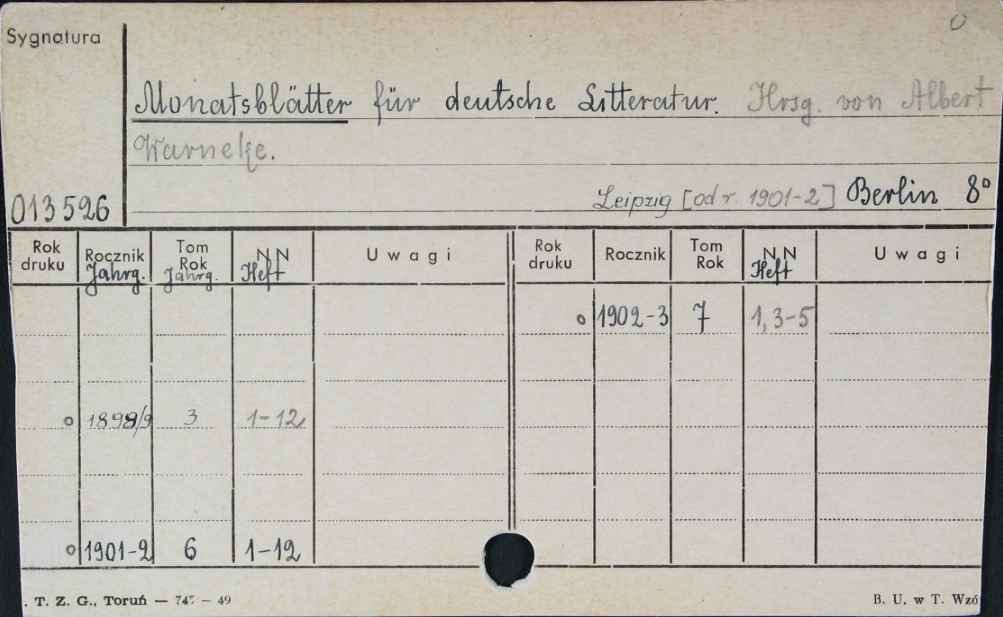 O
Sygnatura
Monatsblätter für deutsche Litteratur. Hrsg. von Albert
Warneke.
013526 Leipzig [od r. 1901-2] Berlin 8°
Rok druku Rocznik Jahrg. Tom Rok Jahrg. NN Heft Uwagi Rok druku Rocznik Tom Rok NN Heft Uwagi
o 1902-3 7 1, 3-5
o 1898/9 3 1-12
o 1901-2 6 1-12
. T. Z. G., Toruń — 747 — 49 B. U. w T. Wzó